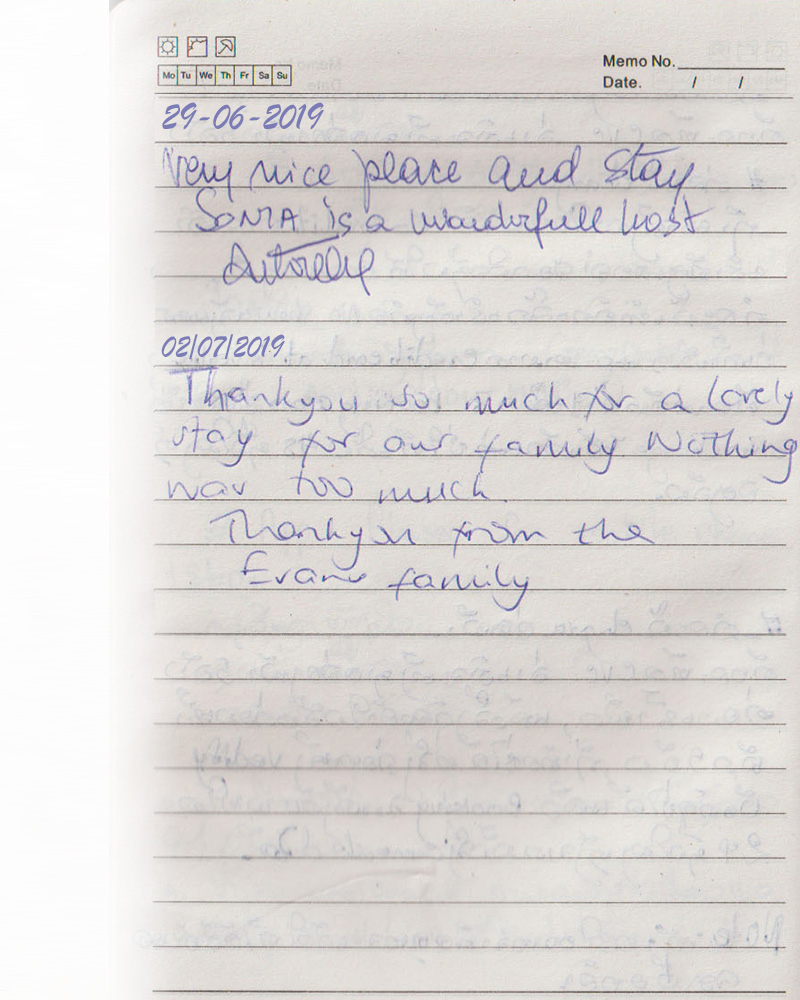 Mo Tu We Th Fr Sa Su
Memo No.
Date. / /
29-06-2019
Very nice place and stay
SONIA is a wonderfull host
02/07/2019
Thankyou so much for a lovely
stay for our family Nothing
was too much.
Thankyou from the
Evans family